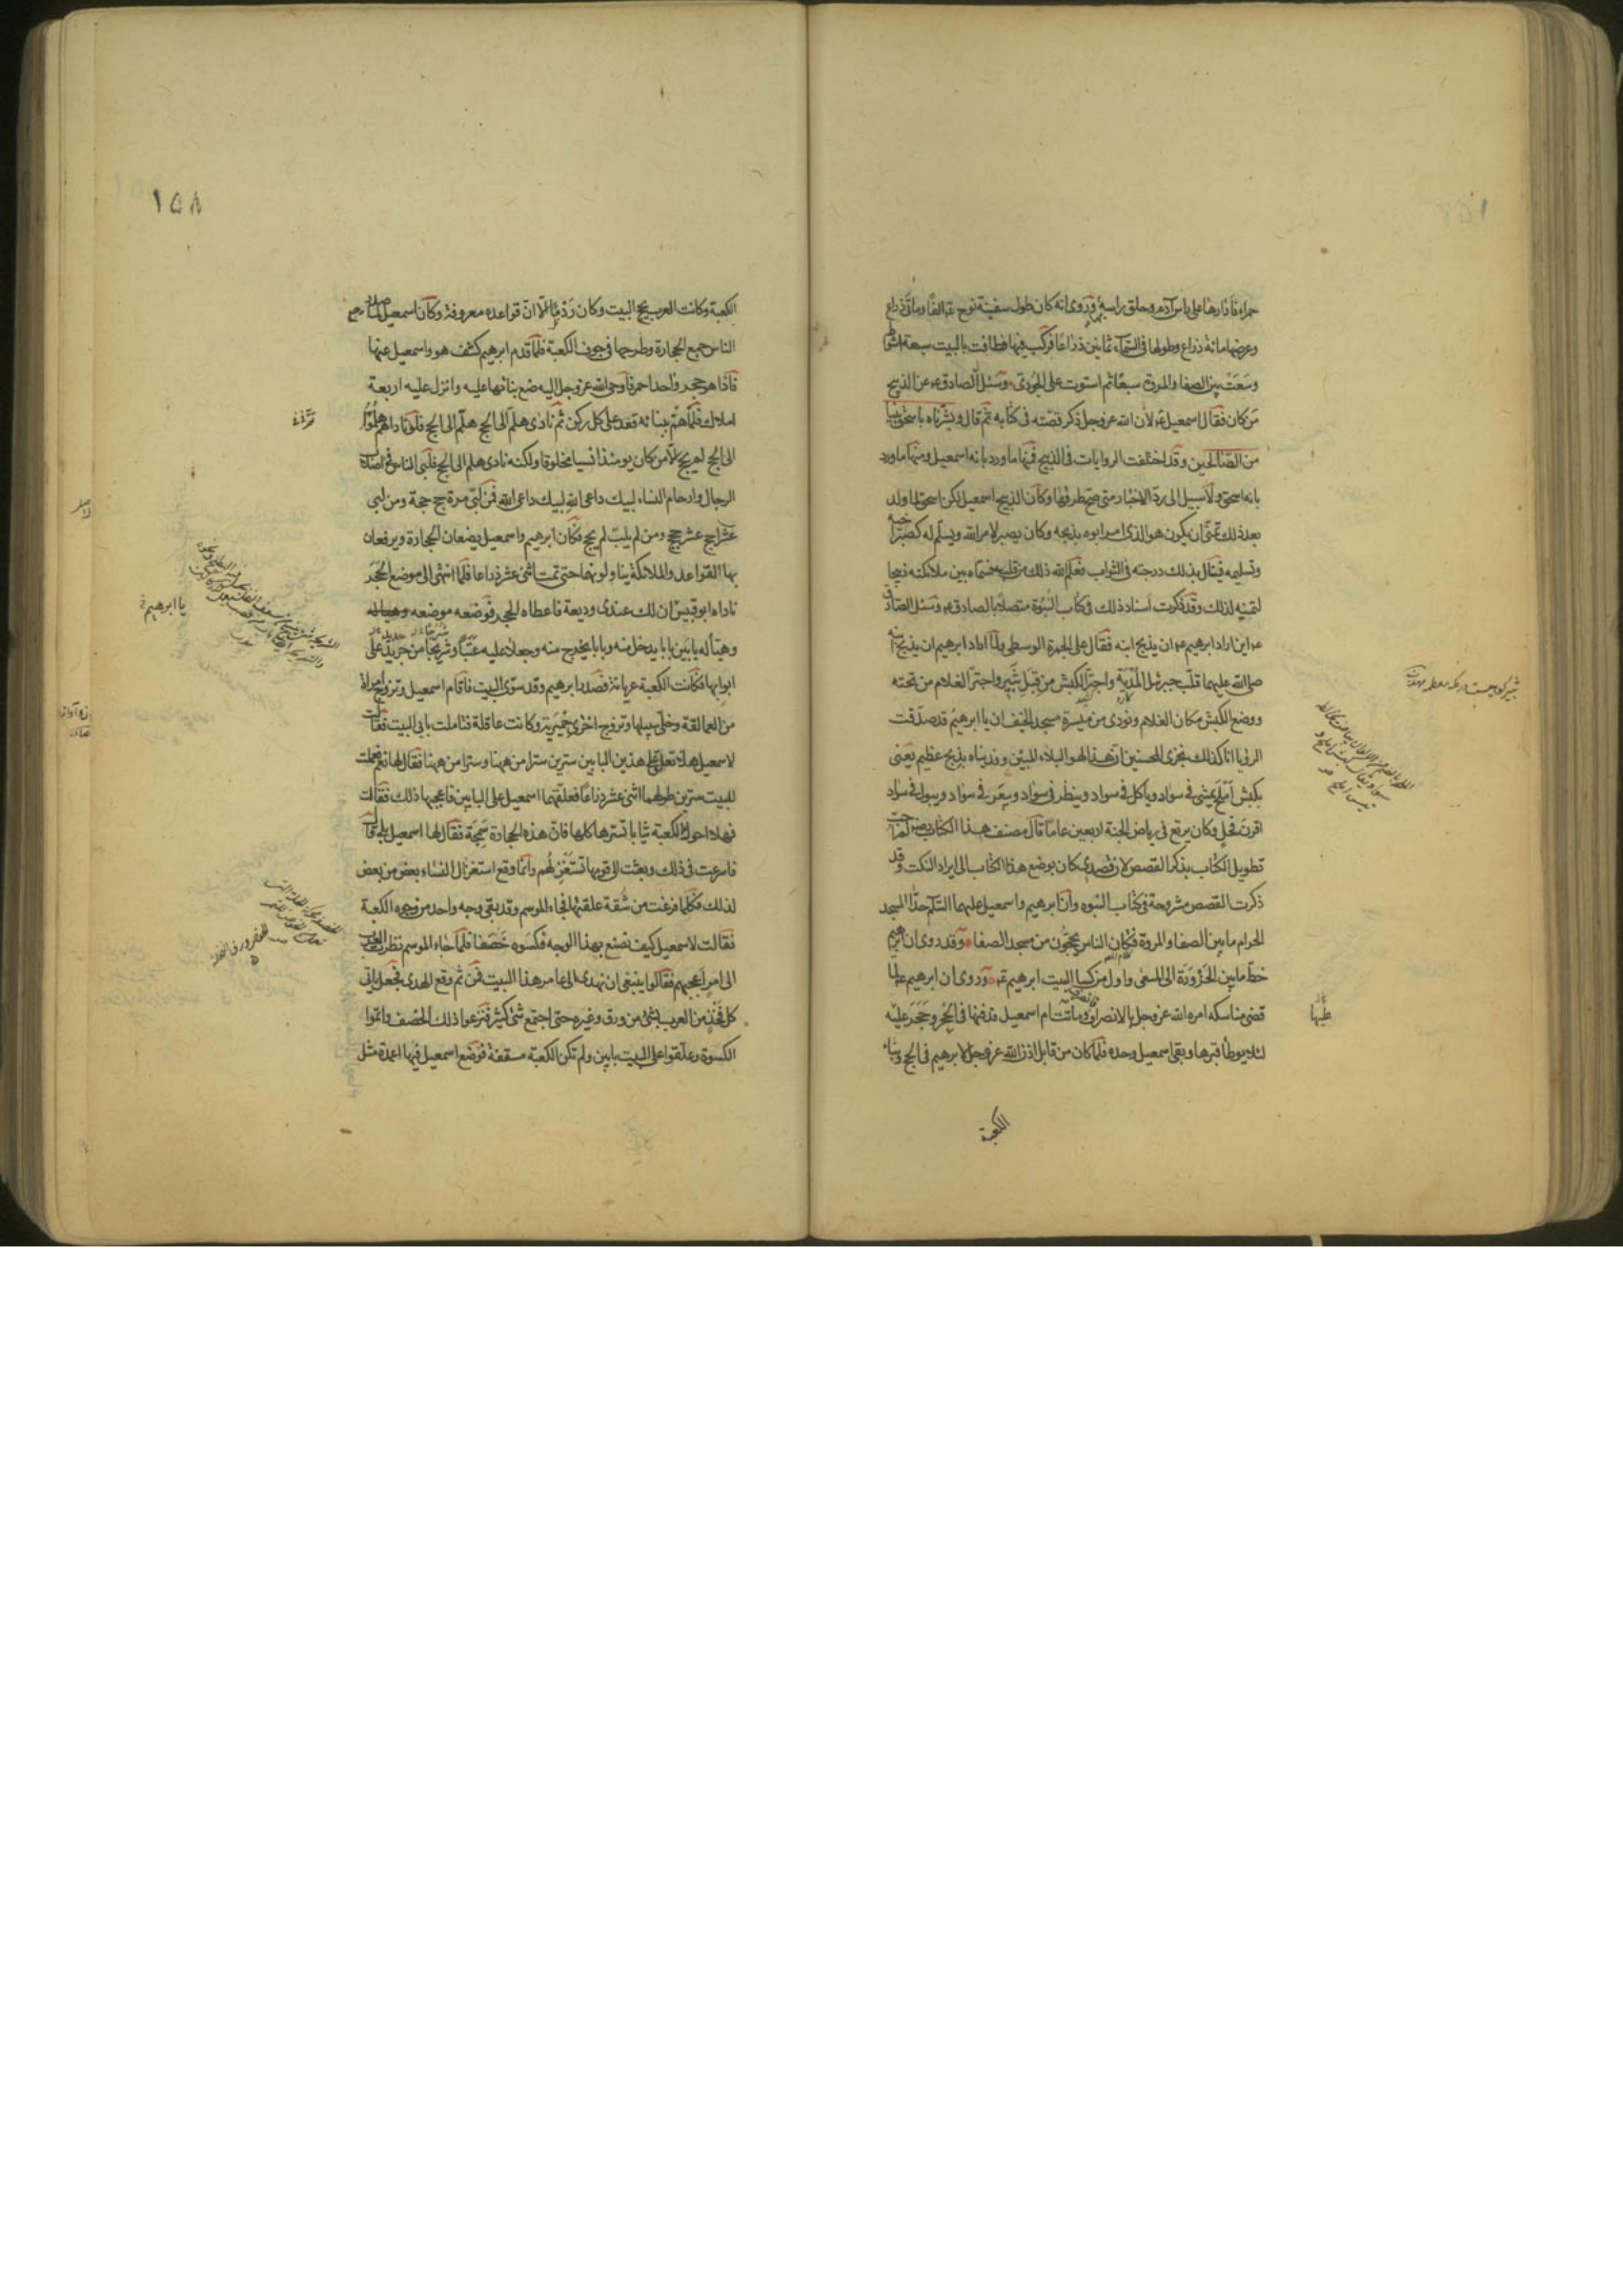 حمراء فادارها على راس آدم وحلق راسه بها وروى انه كان طول سفينة نوح ع الفا ومائتى ذراع
وعرضها مائة ذراع وطولها فى السماء ثمانين ذراعا فركب فيها فطافت بالبيت سبعة اشواط
وسعت بين الصفا والمروة سبعا ثم استوت على الجودى وسئل الصادق ع عن الذبيح
من كان فقال اسمعيل ع لان الله عز وجل ذكر قصته فى كتابه ثم قال وبشرناه باسحق نبيا
من الصالحين وقد اختلفت الروايات فى الذبيح فمنها ما ورد بانه اسمعيل ومنها ما ورد
بانه اسحق ولا سبيل الى رد الاخبار متى صح طرقها وكان الذبيح اسمعيل لكن اسحق لما ولد
بعد ذلك تمنى ان يكون هو الذى امر ابوه بذبحه وكان يصبر لامر الله ويسلم له كصبر اخيه
وتسليمه فينال بذلك درجته فى الثواب فعلم الله ذلك من قلبه فسماه بين ملائكته ذبيحا
لتمنيه لذلك وقد ذكرت اسناد ذلك فى كتاب النبوة متصلا بالصادق ع وسئل الصادق
ع اين اراد ابرهيم ع ان يذبح ابنه فقال على الجمرة الوسطى ولما اراد ابرهيم ان يذبح ابنه
صلى الله عليهما قلب جبرئيل المدية واجتر الكبش من قبل ثبير واجتر الغلام من تحته
ووضع الكبش مكان الغلام ونودى من ميسرة مسجد الخيف ان يا ابرهيم قد صدقت
الرؤيا انا كذلك نجزى المحسنين ان هذا لهو البلاء المبين وفديناه بذبح عظيم يعنى
بكبش املح يمشى فى سواد وياكل فى سواد وينظر فى سواد ويبعر فى سواد ويبول فى سواد
اقرن فحل وكان يرتع فى رياض الجنة اربعين عاما قال مصنف هذا الكتاب رض لم احب
تطويل الكتاب بذكر القصص لان قصدى كان بوضع هذا الكتاب الى ايراد النكت وقد
ذكرت القصص مشروحة فى كتاب النبوه وان ابرهيم واسمعيل عليهما السلم حدا المسجد
الحرام ما بين الصفا والمروة فكان الناس يحجون من مسجد الصفا وقد روى ان ابرهيم
خط ما بين الحزورة الى المسعى واول من كسا البيت ابرهيم ع وروى ان ابرهيم ع لما
قضى مناسكه امره الله عز وجل بالانصراف فانصرف وماتت ام اسمعيل فدفنها فى الحجر وحجر عليه
لئلا يوطأ قبرها وبقى اسمعيل وحده فلما كان من قابل اذن الله عز وجل لابرهيم فى الحج وبناء
الكعبة
عليها
١٥٨
الكعبة وكانت العرب تحج البيت وكان ردما الا ان قواعده معروفة وكان اسمعيل لما صدر
الناس جمع الحجارة وطرحها فى جوف الكعبة فلما قدم ابرهيم كشف هو واسمعيل عنها
فاذا هو حجر واحد احمر فاوحى الله عز وجل اليه ضع بنائها عليه وانزل عليه اربعة
املاك فلما هم ببنائه قعد على كل ركن ثم نادى هلم الى الحج هلم الى الحج فلو ناداهم هلموا
الى الحج لم يحج الا من كان يومئذ انسيا مخلوقا ولكنه نادى هلم الى الحج فلبى الناس فى اصلاب
الرجال وارحام النساء لبيك داعى الله لبيك داعى الله فمن لبى مرة حج حجة ومن لبى
عشرا حج عشر حجج ومن لم يلب لم يحج فكان ابرهيم واسمعيل يضعان الحجارة ويرفعان
بها القواعد والملائكة يناولونهما حتى تمت اثنى عشر ذراعا فلما انتهى الى موضع الحجر
ناداه ابو قبيس ان لك عندى وديعة فاعطاه الحجر فوضعه موضعه
وهيأ له بابين بابا يدخل منه وبابا يخرج منه وجعلا عليه عتبا وشريجا من جريد على
ابوابها فكانت الكعبة عريانة فصدر ابرهيم وقد سوى البيت فاقام اسمعيل وتزوج امراة
من العمالقة وخلى سبيلها وتزوج اخرى حميرية وكانت عاقلة فتاملت بابى البيت فقالت
لاسمعيل هلا تعلق على هذين البابين سترين سترا من ههنا وسترا من ههنا فقال لها نعم فعملت
للبيت سترين طولهما اثنى عشر ذراعا فعلقهما اسمعيل على البابين فاعجبها ذلك فقالت
فهلا احوك للكعبة ثيابا تسترها كلها فان هذه الحجارة سمجة فقال لها اسمعيل بلى قال
فاسرعت فى ذلك وبعثت الى قومها تستغزلهم وانما وقع استغزال النساء بعض من بعض
لذلك فكلما فرغت من شقة علقتها فجاء الموسم وقد بقى وجه واحد من وجوه الكعبة
فقالت لاسمعيل كيف نصنع بهذا الوجه فكسوه خصفا فلما جاء الموسم نظرت العرب
الى امر اعجبهم فقالوا ينبغى ان نهدى الى عامر هذا البيت فمن ثم وقع الهدى فجعل ياتى
كل فخذ من العرب بشئ من ورق وغيره حتى اجتمع شئ كثير فنزعوا ذلك الخصف واتموا
الكسوة وعلقوا على البيت بابين ولم تكن الكعبة مسقفة فوضع اسمعيل فيها اعمدة مثل
يا ابرهيم